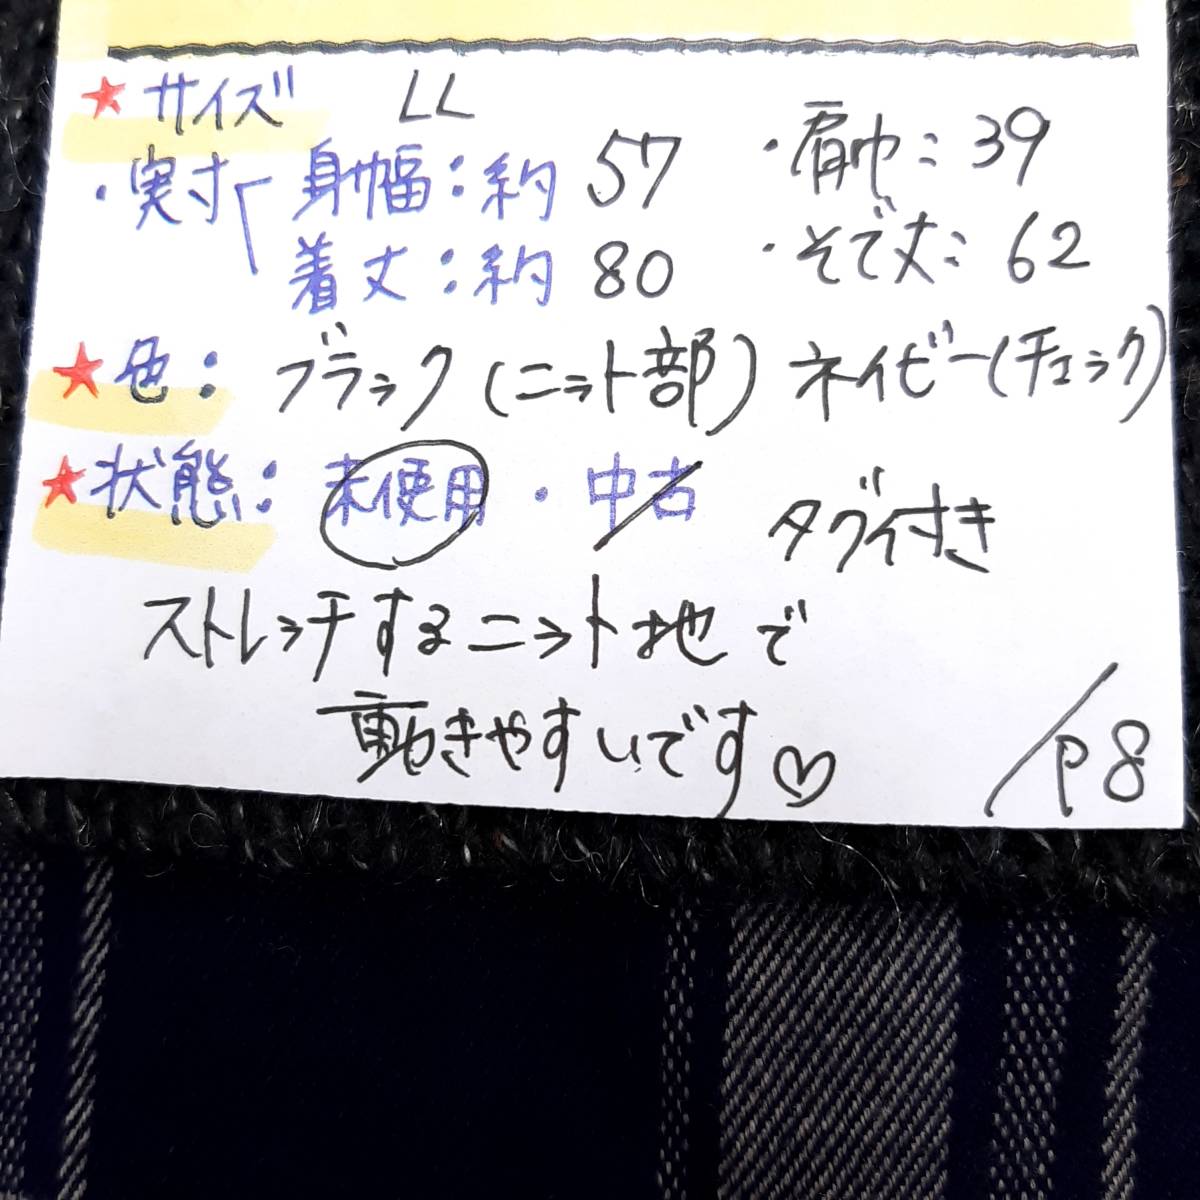 ★サイズ LL
・実寸 身幅:約57 ・肩巾:39
着丈:約80 ・そで丈:62
★色:ブラック(ニット部)ネイビー(チェック)
★状態:未使用・中古 タグ付き
ストレッチするニット地で
動きやすいです♡
/P8